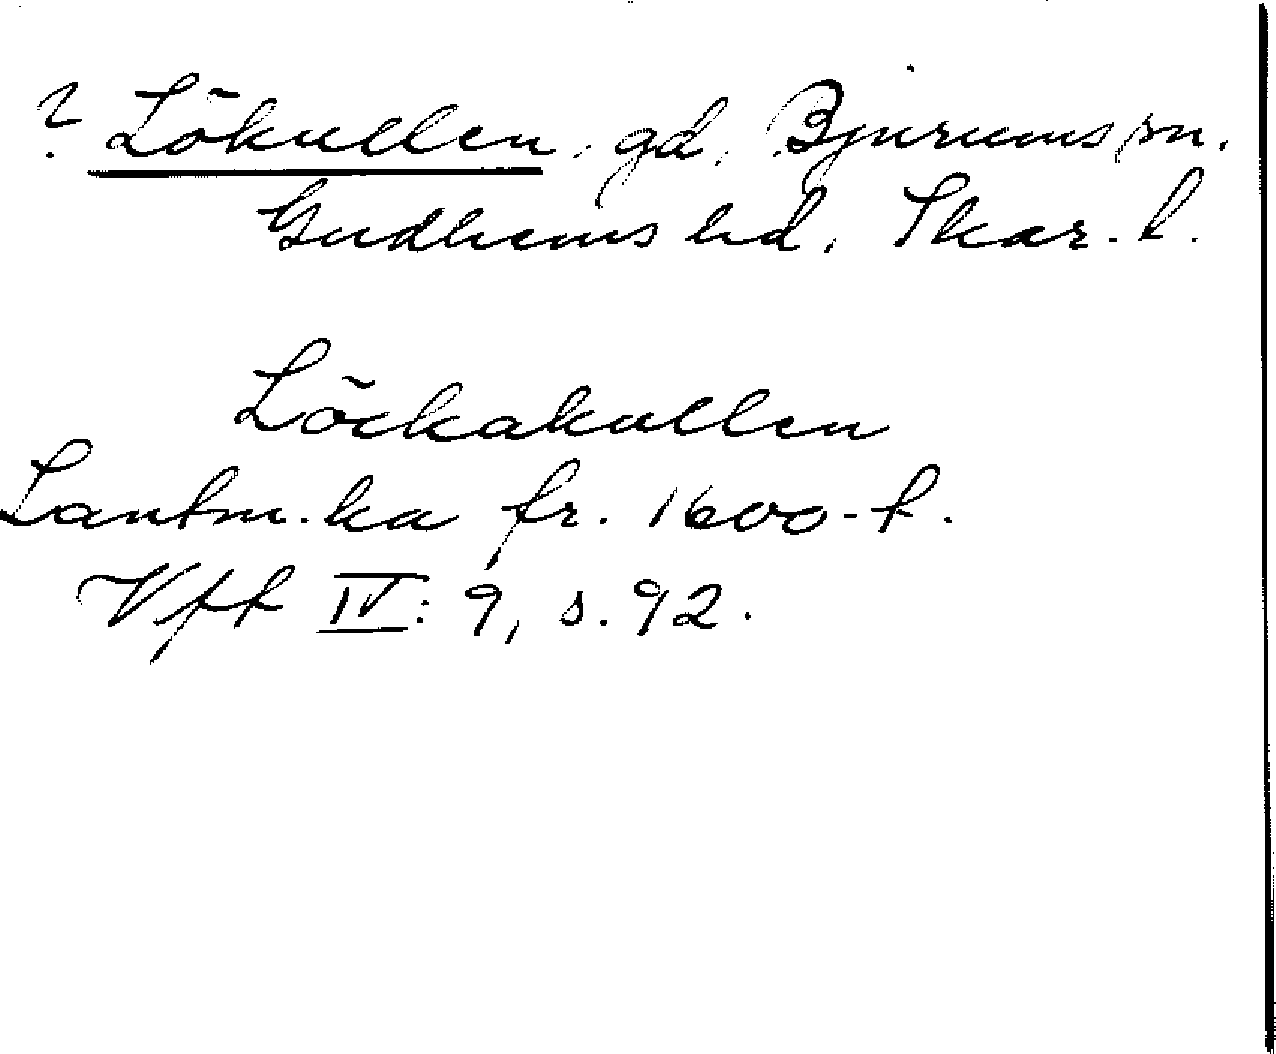 ? Lökullen, gd, Bjurums sn.
Gudhems hd, Skar. l.
Löckakullen
Lantm. ka fr. 1600-t.
Vft IV: 9, s. 92.